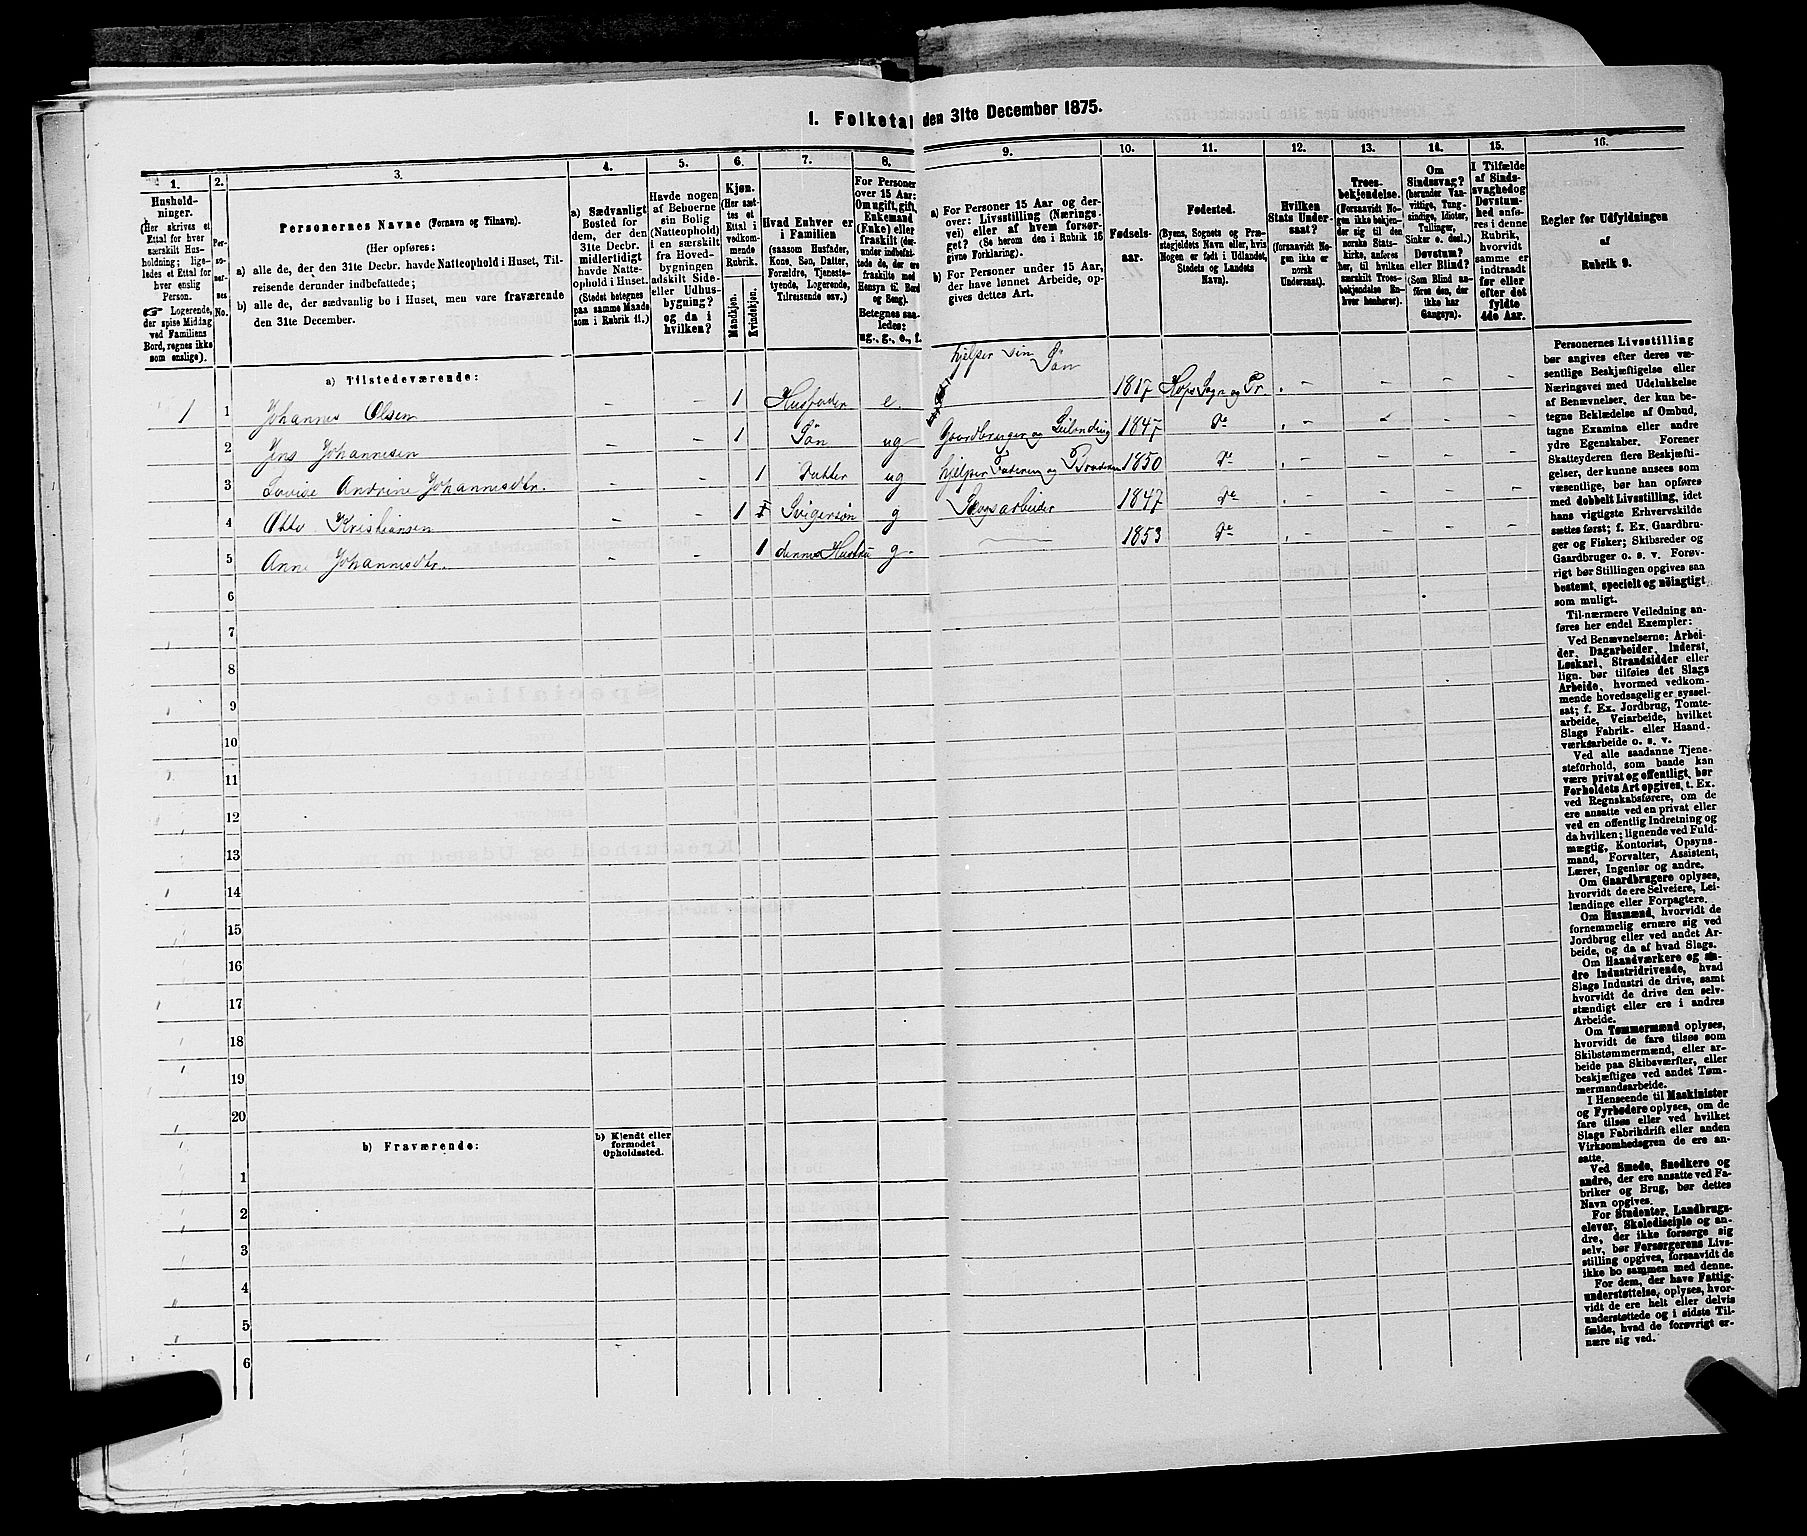 I. Folketal den 31te December 1875.
1. 2. 3. 4. 5. 6. 7. 8. 9. 10. 11. 12. 13. 14. 15. 16.
Husholdninger.
(Her skrives et
Ettal for hver
særskilt Husholdning;
ligeledes et Ettal for
hver enslig
Person.
☞ Logerende,
der spise Middag
ved Familiens
Bord, regnes ikke
som enslige).
Personernes No.
Personernes Navne (Fornavn og Tilnavn).
(Her opføres:
a) alle de, der den 31te Decbr. havde Natteophold i Huset, Tilreisende derunder indbefattede;
b) alle de, der sædvanlig bo i Huset, men vare fraværende
den 31te December.
a) Sædvanligt
Bosted for
dem, der den
31te Decbr.
midlertidigt
havde Natteophold i Huset.
(Stedet betegnes
paa samme Maade
som i Rubrik 11.)
Havde nogen
af Beboerne
sin Bolig
(Natteophold)
i en særskilt
fra Hovedbygningen
adskilt Side-
eller Udhusbygning?
og da i
hvilken?
Kjøn.
(Her sættes et
Ettal i
vedkommende
Rubrik.
Mandkjøn.
Kvindekjøn.
Hvad Enhver er
i Familien
(saasom Husfader,
Kone, Søn, Datter,
Forældre, Tjenestetyende, Logerende,
Tilreisende osv.)
For Personer
over 15 Aar:
Om ugift, gift,
Enkemand
(Enke) eller
fraskilt (derunder indbefattede de, der ere
fraskilte med
Hensyn til Bord
og Seng).
Betegnes saaledes:
ug., g., e., f.
a) For Personer 15 Aar og derover: Livsstilling (Næringsvei) eller af hvem forsørget? (Se herom den i Rubrik 16
givne Forklaring).
b) For Personer under 15 Aar,
der have lønnet Arbeide, opgives dettes Art.
Fødselsaar.
Fødested.
(Byens, Sognets og Præstegjeldets Navn eller, hvis
Nogen er født i Udlandet,
Stedets og Landets
Navn).
Hvilken
Stats Undersaat?
(forsaavidt Nogen ikke er
norsk
Undersaat).
Troesbekjendelse.
(Forsaavidt Nogen ikke bekjender sig til den
norske Statskirke, anføres
her, til hvilken
særskilt Troesbekjendelse Enhver henhører).
Om
Sindssvag?
(herunder Vanvittige, Tungsindige, Idioter,
Tullinger,
Sinker o. desl.)
Døvstum?
eller Blind?
(Som Blind anføres den, der
ikke har
Gangsyn).
I Tilfælde
af Sindssvaghed og
Døvstumhed anføres i denne
Rubrik,
hvorvidt
samme er
indtraadt
før eller
efter det
fyldte
4de Aar.
Regler for Udfyldningen
af
Rubrik 9.
a) Tilstedeværende:
hjelper sin Søn
1 1 Johannes Olsen - - 1 Husfader e. 1817 Hops Sogn og Pr. - - - -
2 Jens Johannesen - - 1 Søn ug Gaardbruger og Leilænding 1847 Do - - - -
3 Lovise Andrine Johannesdtr. - - 1 Datter ug hjelper Faderen og Broderen 1850 Do - - - -
4 Otto Kristiansen - - 1 Svigersøn g Skovsarbeider 1847 Do - - - -
5 Anne Johannesdtr. - - 1 dennes Hustru g. 1853 Do - - - -
6
7
8
9
10
11
12
13
14
15
16
17
18
19
20
b) Fraværende:
b) Kjendt eller
formodet
Opholdssted.
1
2
3
4
5
6
Personernes Livsstilling
bør angives efter deres væsentlige Beskjæftigelse eller
Næringsvei med Udelukkelse
af Benævnelser, der kun betegne Beklædelse af Ombud,
tagne Examina eller andre
ydre Egenskaber. Forener
Skatteyderen flere Beskjæftigelser, der kunne ansees som
væsentlige, bør han opføres
med dobbelt Livsstilling, idet
hans vigtigste Erhvervskilde
sættes først; f. Ex. Gaardbruger og Fisker; Skibsreder og
Gaardbruger o. s. v. Forøvrigt bør Stillingen opgives saa
bestemt, specielt og nøiagtigt
som muligt.
Til nærmere Veiledning anføres her endel Exempler:
Ved Benævnelserne: Arbeider, Dagarbeider, Inderst,
Løskarl, Strandsidder eller
lign. bør tilføies det Slags
Arbeide, hvormed vedkommende hovedsagelig er sysselsat; f. Ex. Jordbrug, Tomtearbeide, Veiarbeide, hvilket
Slags Fabrik- eller Haandværksarbeide o. s. v.
Ved alle saadanne Tjenesteforhold, som baade kan
være privat og offentligt, bør
Forholdets Art opgives, t. Ex.
ved Regnskabsførere, om de
ere ansatte ved en privat eller
ved en offentlig Indretning og
da hvilken; lignende ved Fuldmægtig, Kontorist, Opsynsmand, Forvalter, Assistent,
Lærer, Ingeniør og andre.
Om Gaardbrugere oplyses,
hvorvidt de ere Selveiere, Leilændinge eller Forpagtere.
Om Husmænd, hvorvidt de
fornemmelig ernære sig ved
Jordbrug eller ved andet Arbeide, og da af hvad Slags.
Om Haandværkere og andre Industridrivende, hvad
Slags Industri de drive, samt
hvorvidt de drive den selvstændigt eller ere i andres
Arbeide.
Om Tømmermænd oplyses,
hvorvidt de fare tilsøs som
Skibstømmermænd, eller arbeide paa Skibsværfter, eller
beskjæftiges ved andet Tømmermandsarbeide.
I Henseende til Maskinister
og Fyrbødere oplyses, om de
fare tilsøs eller ved hvilket
Slags Fabrikdrift eller anden
Virksomhedsgren de ere ansatte.
Ved Smede, Snedkere og
andre, der ere ansatte ved Fabriker og Brug, bør dettes
Navn opgives.
For Studenter, Landbrugselever, Skoledisciple og andre, der ikke forsørge sig
selv, bør Forsørgerens Livsstilling opgives, forsaavidt de
ikke bo sammen med denne.
For dem, der have Fattigunderstøttelse, oplyses, hvorvidt de ere helt eller delvis
understøttede og i sidste Tilfælde, hvad de forøvrigt ernære sig ved.